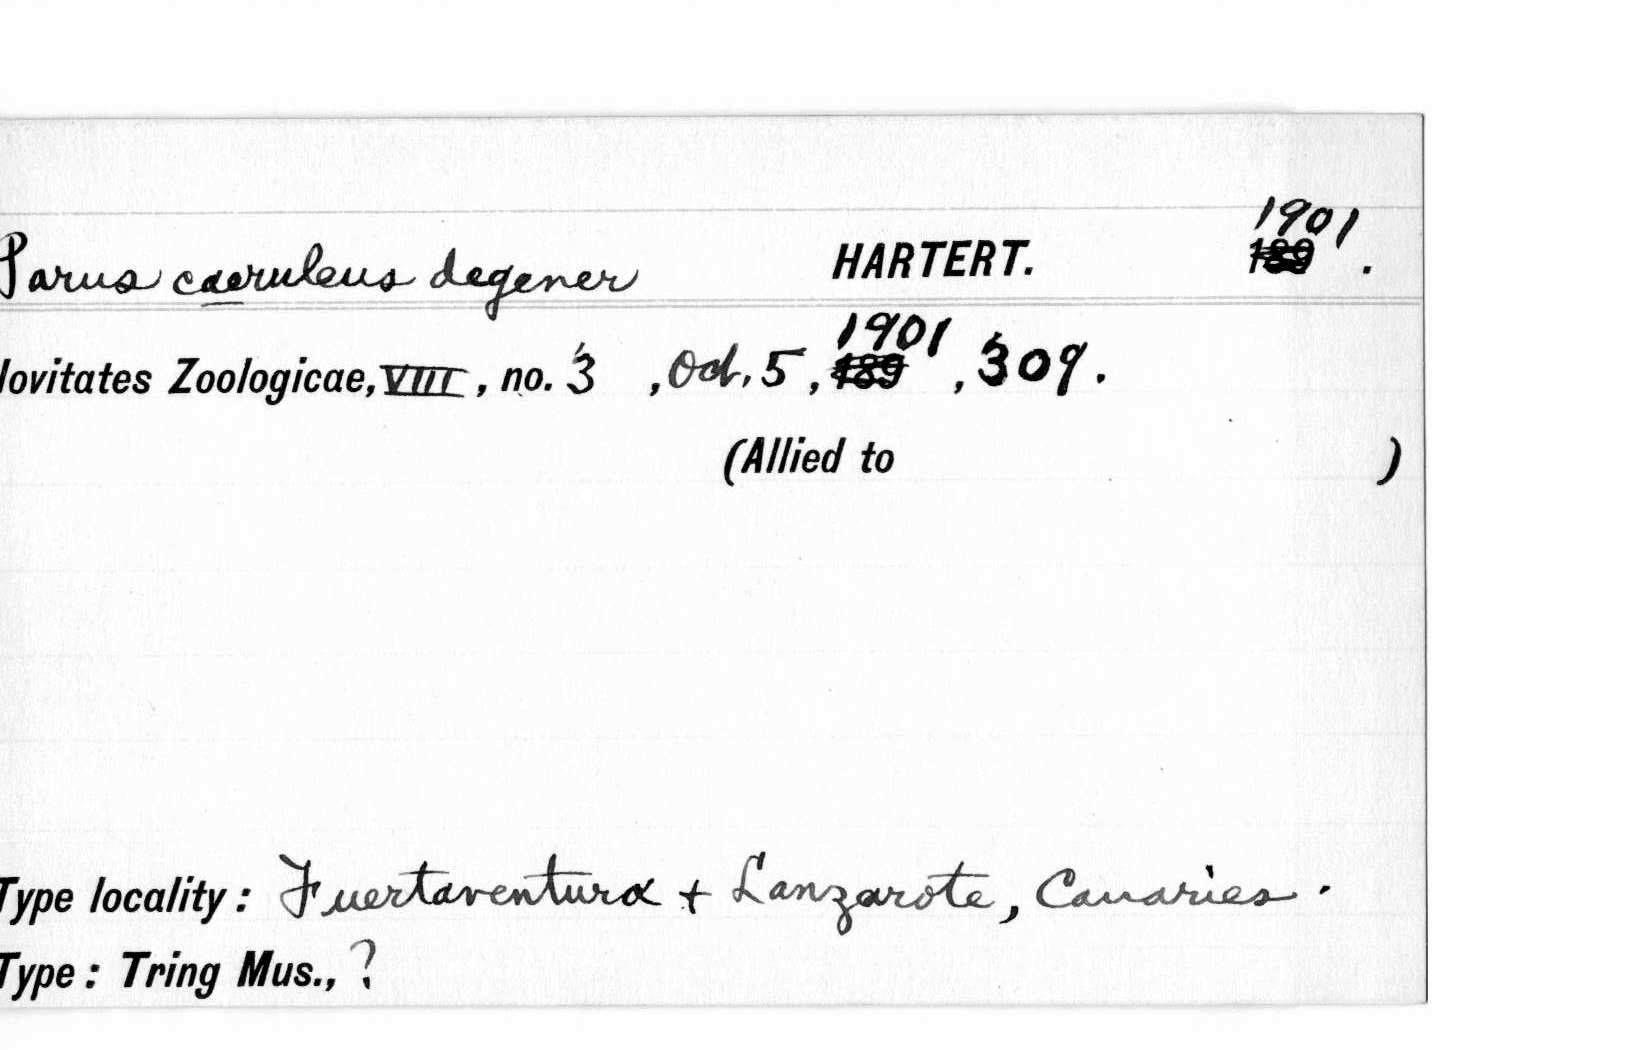 Parus caeruleus degener HARTERT. 1901 189 .
Novitates Zoologicae, VIII, no. 3 , Oct. 5, 1901 189 , 309.
(Allied to )
Type locality: Fuertaventura + Lanzarote, Canaries.
Type: Tring Mus., ?